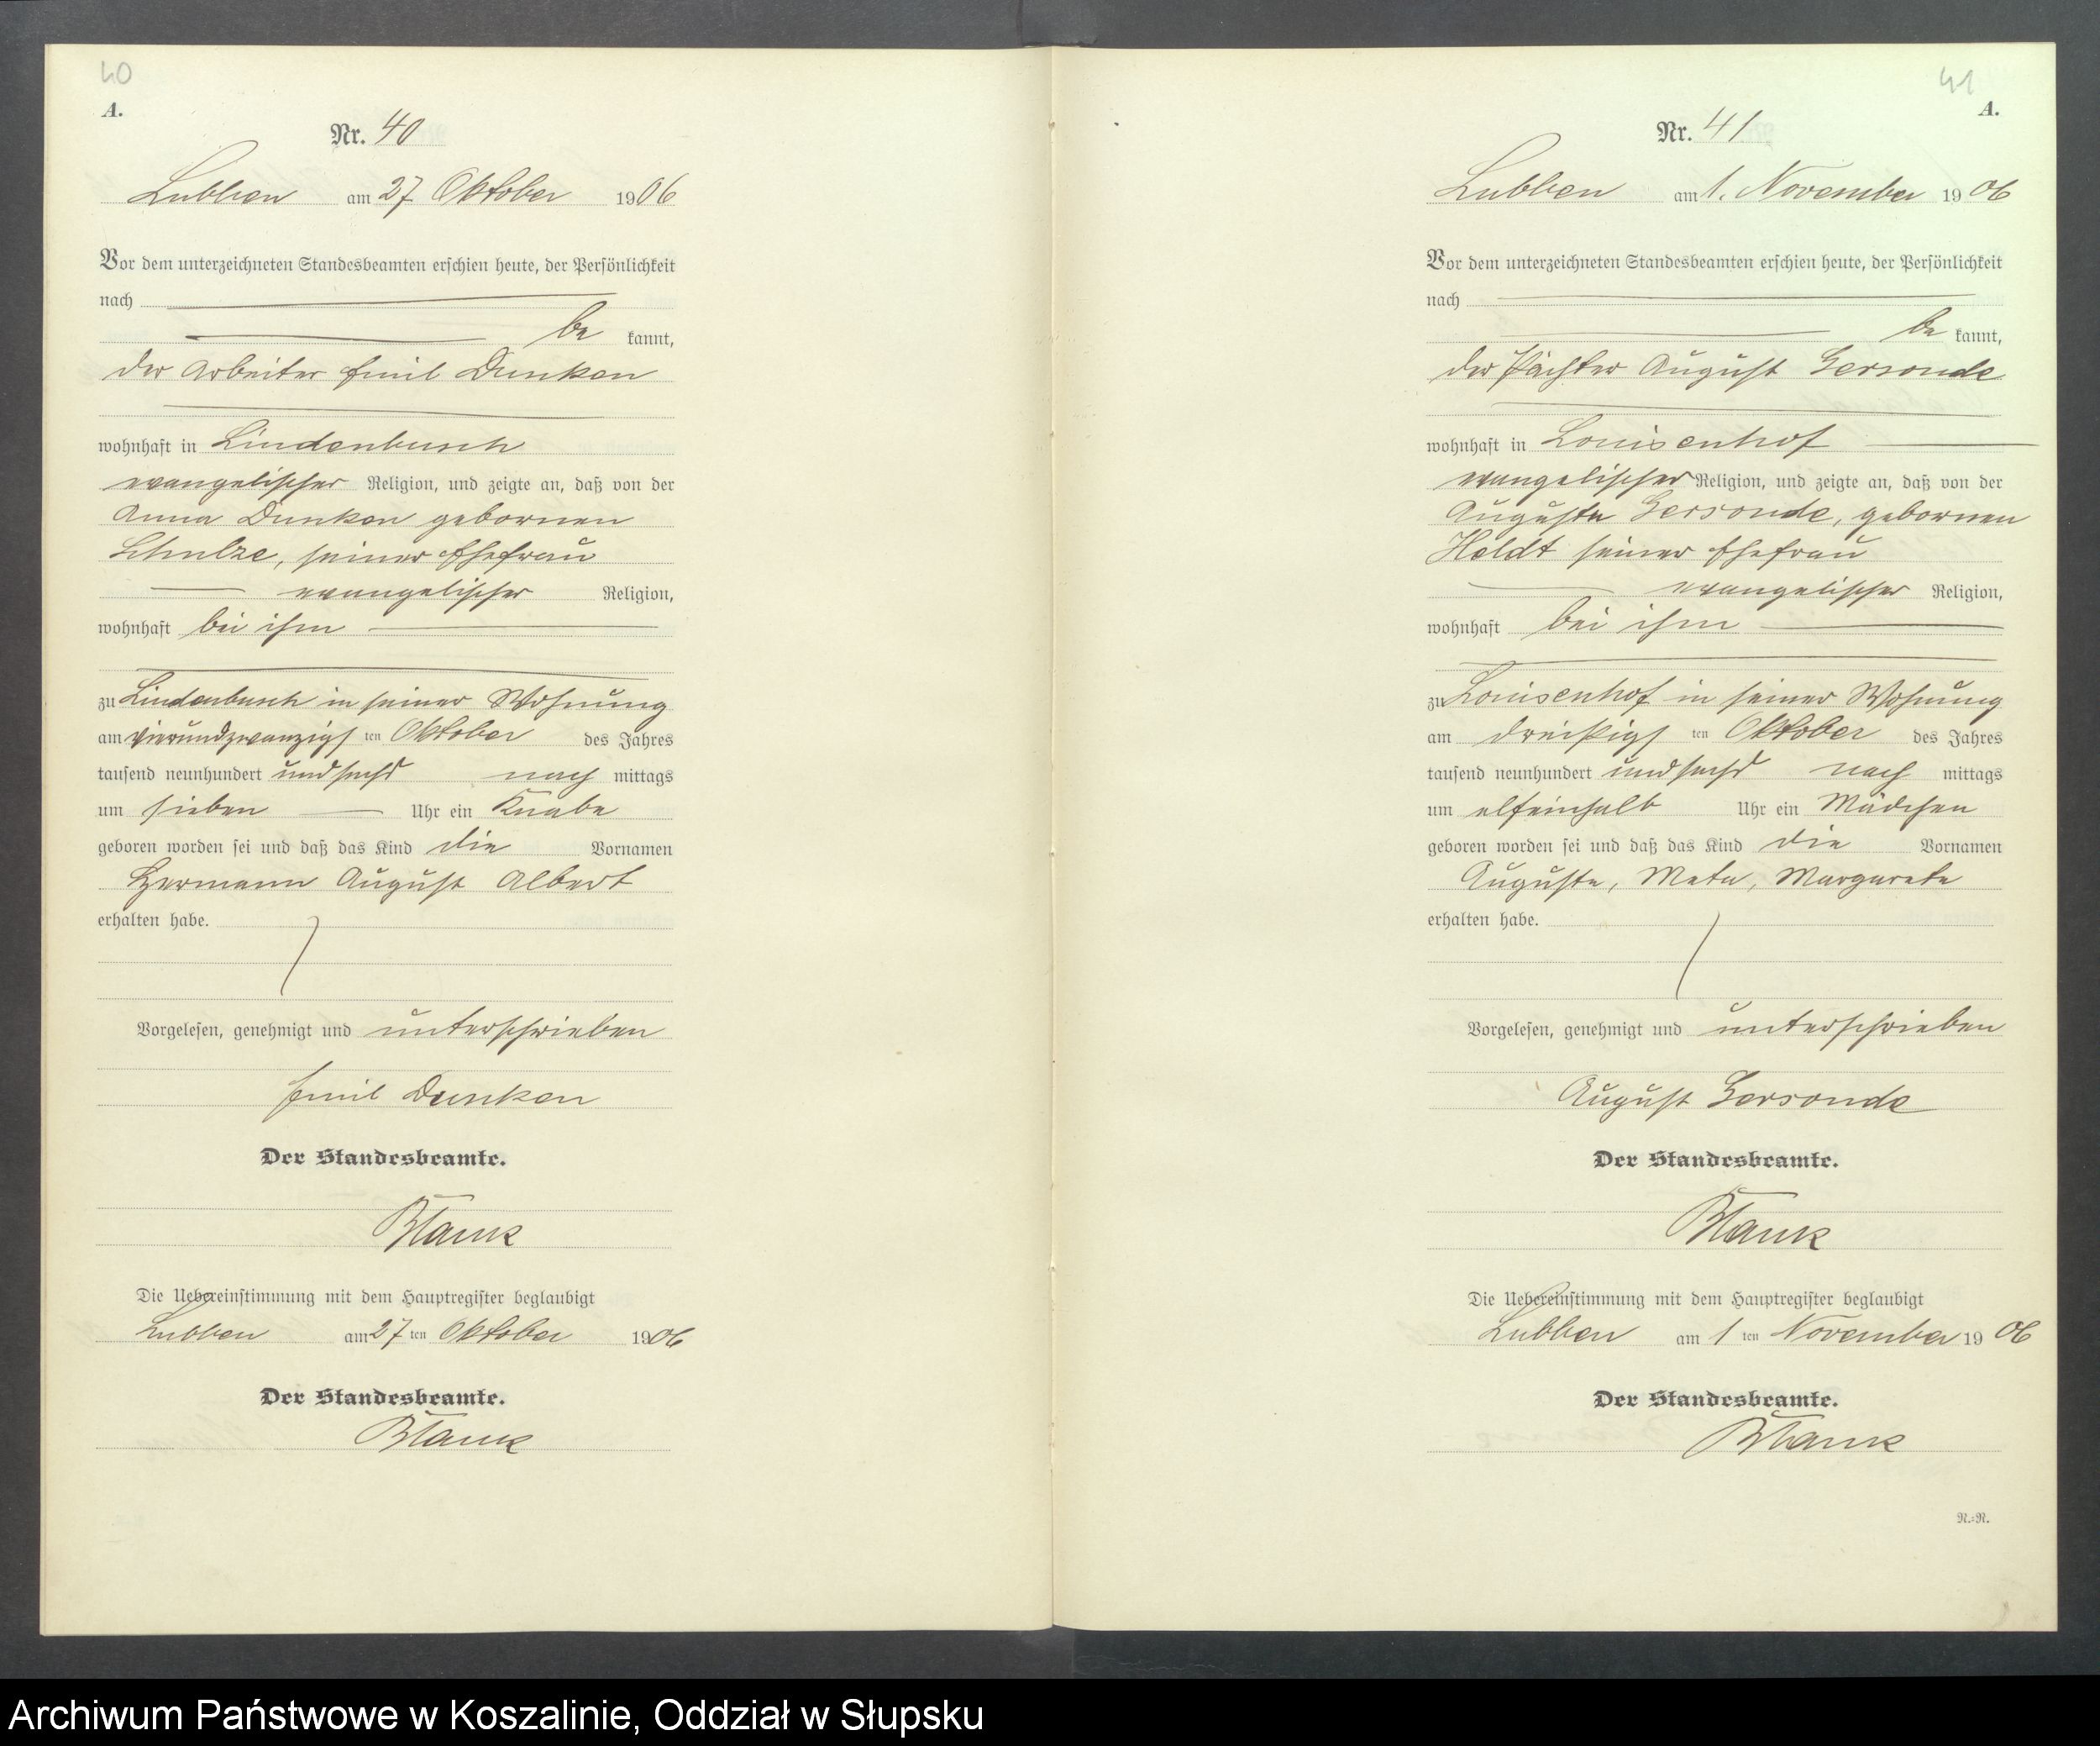 40
A.
Nr. 40
Lubben am 27 Oktober 1906
Vor dem unterzeichneten Standesbeamten erschien heute, der Persönlichkeit
nach
be kannt,
der Arbeiter Emil Dunken
wohnhaft in Lindenbusch
evangelischer Religion, und zeigte an, daß von der
Anna Dunken gebornen
Schulze, seiner Ehefrau
evangelischer Religion,
wohnhaft bei ihm
zu Lindenbusch in seiner Wohnung
am vierundzwanzigs ten Oktober des Jahres
tausend neunhundert und sechs nach mittags
um sieben Uhr ein Knabe
geboren worden sei und daß das Kind die Vornamen
Hermann August Albert
erhalten habe.
Vorgelesen, genehmigt und unterschrieben
Emil Dunken
Der Standesbeamte.
Die Uebereinstimmung mit dem Hauptregister beglaubigt
Lubben am 27 ten Oktober 1906
Der Standesbeamte.
41
A.
Nr. 41
Lubben am 1. November 1906
Vor dem unterzeichneten Standesbeamten erschien heute, der Persönlichkeit
nach
be kannt,
der Pächter August Gersonde
wohnhaft in Louisenhof
evangelischer Religion, und zeigte an, daß von der
Auguste Gersonde, gebornen
Holdt seiner Ehefrau
evangelischer Religion,
wohnhaft bei ihm
zu Louisenhof in seiner Wohnung
am dreißigs ten Oktober des Jahres
tausend neunhundert und sechs nach mittags
um elfeinhalb Uhr ein Mädchen
geboren worden sei und daß das Kind die Vornamen
Auguste, Meta, Margarete
erhalten habe.
Vorgelesen, genehmigt und unterschrieben
August Gersonde
Der Standesbeamte.
Die Uebereinstimmung mit dem Hauptregister beglaubigt
Lubben am 1 ten November 1906
Der Standesbeamte.
R.=R.
Archiwum Państwowe w Koszalinie, Oddział w Słupsku